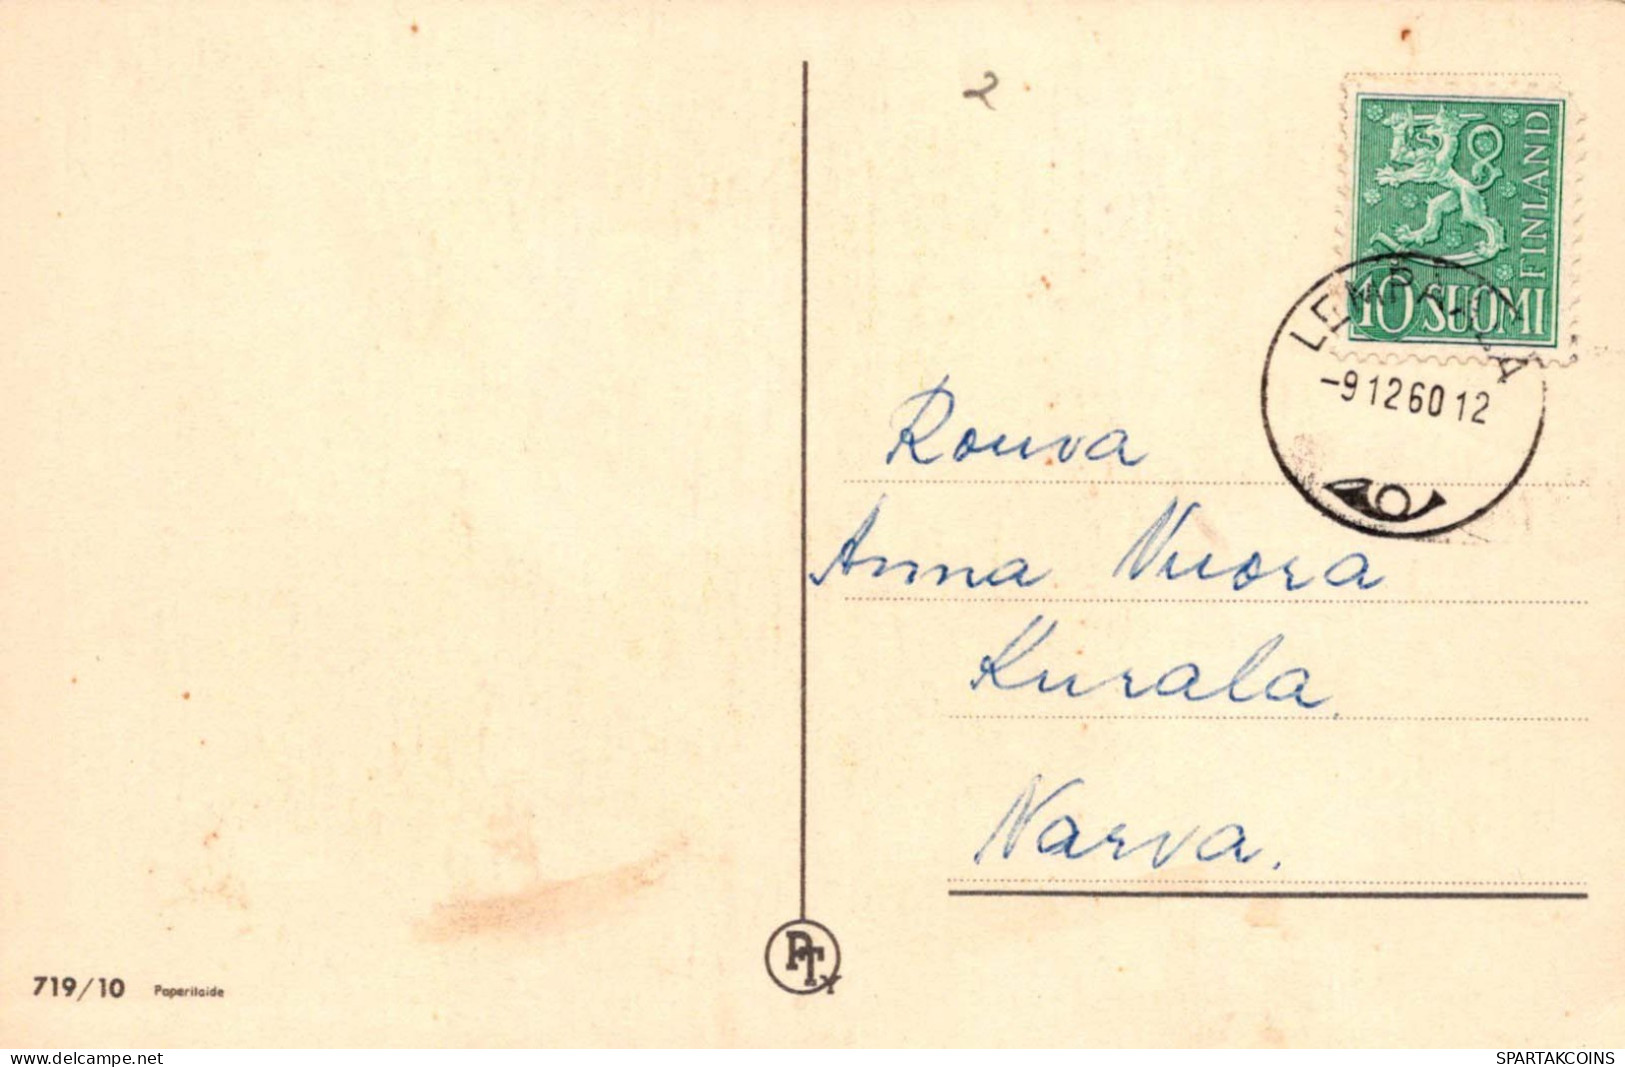 2
FINLAND
10 SUOMI
LEMPÄÄLÄ
-9 12 60 12
Rouva
Anna Vuora
Kurala.
Narva.
PTY
719/10 Paperitaide
www.delcampe.net
SPARTAKCOINS